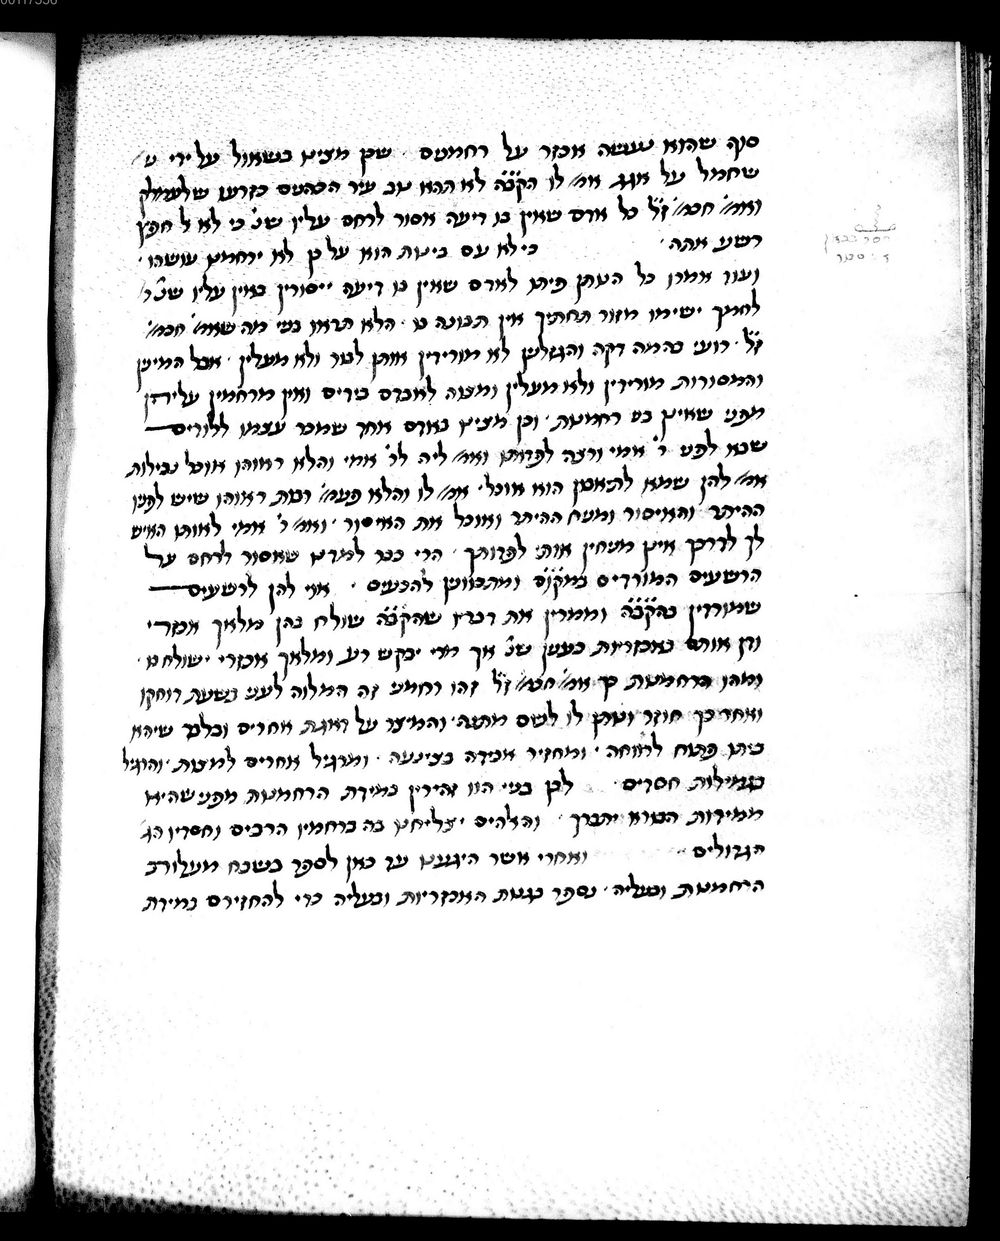 סוף שהוא נעשה אכזר על רחמנים · שכן מצינו בשאול על ידי ש׳
שחמל על אגג אמ׳ לו הקב״ה לא תהא טוב עיר הכהנים כזרעו של עמלק
ואמ׳ חכמ׳ ז״ל כל אדם שאין בו דיעה אסור לרחם עליו שנ׳ כי לא ל חפץ
רשע אתה · כי לא עם בינות הוא על כן לא ירחמנו עושהו ·
ועוד אמרו כל הנותן פיתו לאדם שאין בו דיעה ייסורין באין עליו שנ׳
לחמך ישימו מזור תחתיך אין תבונה בו · הלא תראו בני מה שאמ׳ חכמ׳
ז״ל · רועי בהמה דקה והגזלנין לא מורידין אותן לבור ולא מעלין · אבל המינין
והמסורות מורידין ולא מעלין ומצוה לאבדם בידים ואין מרחמין עליהן
מפני שאינן בני רחמנות · וכן מצינו באדם אחד שמכר עצמו ללודים
שבא לפני ר׳ אמי ורצה לפדותו ואמ׳ ליה לר׳ אמי והלא ראוהו אוכל נבילות
אמ׳ להן שמא לתאבון הוא אוכל · אמ׳ לו והלא פעמ׳ רבות ראוהו שיש לפניו
ההיתר והאיסור ומניח ההיתר ואוכל את האיסור · ואמ׳ ר׳ אמי לאותו האיש
לך לדרכך אינן מניחין אותי לפדותך · הרי כבר למדנו שאסור לרחם על
הרשעים המורדים במקום ומתכוונין להכעיס · אוי להן לרשעים
שמורדין בהקב״ה וממרין את דבריו שהקב״ה שולח בהן מלאך אכזרי
ודן אותם באכזריות כענין שנ׳ אך מרי יבקש רע ומלאך אכזרי ישולח בו ·
ומהו הרחמנות כך אמ׳ חכמ׳ ז״ל זהו רחמני זה המלוה לעני בשעת דוחקו
ואחר כך חוזר ונותן לו לשם מתנה · והמיצר על דאגת אחרים ובלבד שיהא
ביתו פתוח לרווחה · ומחזיר אבידה בצינעה · ומרגיל אחרים למצות · והרגיל
בגמילות חסדים · לכן בניי הוו זהירין במידת הרחמנות מפני שהיא
ממידות הבורא יתברך · והאלהים יצליחנו בה ברחמיו הרבים וחסדיו הג׳
הגדולים · ואחרי אשר היגענו עד כאן לספר בשבח מעלות
הרחמנות ובעליה · נספר בגנות האכזריות ובעליה כדי להחזירם במידת